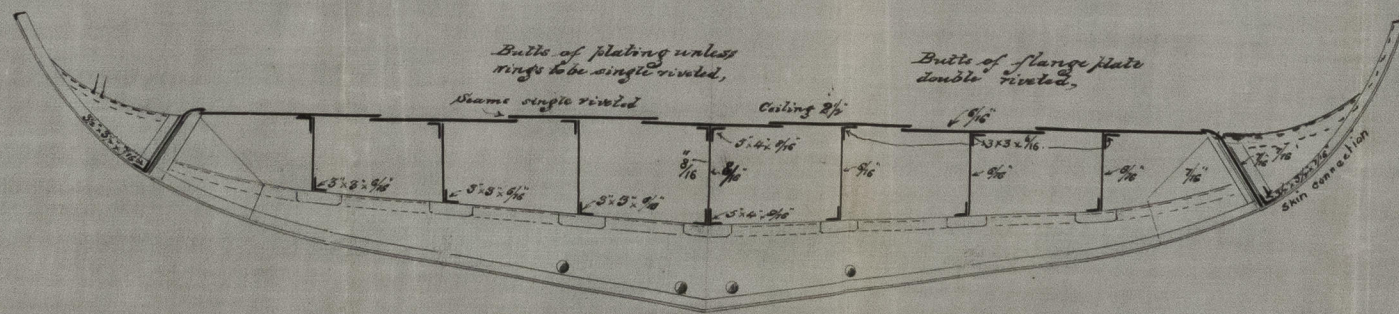 Butts of plating unless
wings to be single riveted,
Butts of flange plate
double riveted,
Seams single riveted
Ceiling 2½"
6/16"
5" × 4" × 8/16"
3 × 3 × 6/16
8/16
6/16"
6/16"
6/16"
7/16"
7/16 7/16
3" × 3" × 6/16"
3" × 3" × 6/16"
3" × 3" × 6/16"
5" × 4" × 8/16"
Skin connection